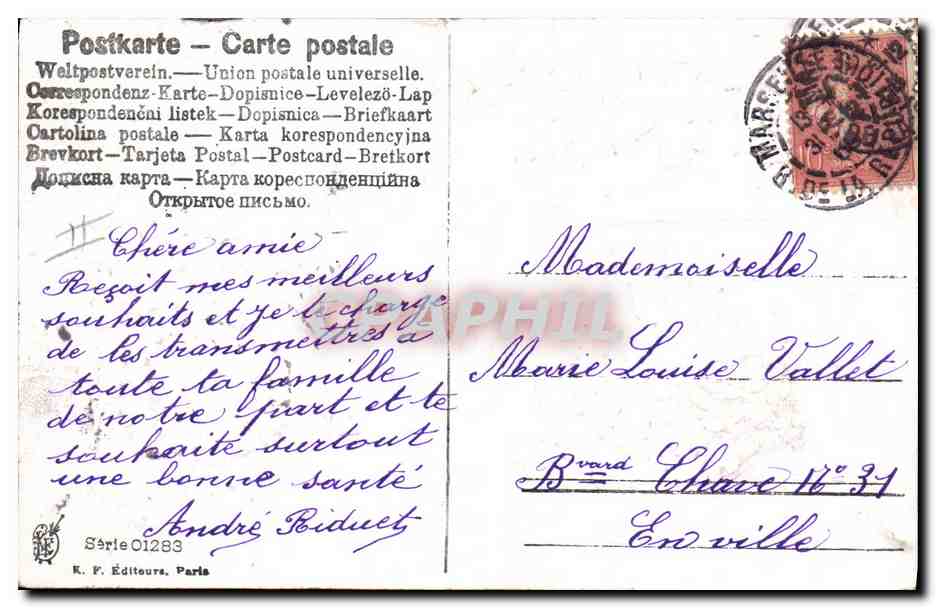 Postkarte – Carte postale
Weltpostverein.—Union postale universelle.
Correspondenz-Karte–Dopisnice–Levelezö-Lap
Korespondenčni listek–Dopisnica–Briefkaart
Cartolina postale–Karta korespondencyjna
Brevkort–Tarjeta Postal–Postcard–Bretkort
Дописна карта–Карта кореспонденційна
Открытое письмо.
II
Chère amie
Reçoit mes meilleurs
souhaits et je te charge
de les transmettres a
toute ta famille
de notre part et te
souhaite surtout
une bonne santé
André Riduet
Série 01283
K. F. Éditeurs, Paris
MARSEILLE
Mademoiselle
Marie Louise Vallet
Bvard Chave N° 31
En ville
CPAPHIL